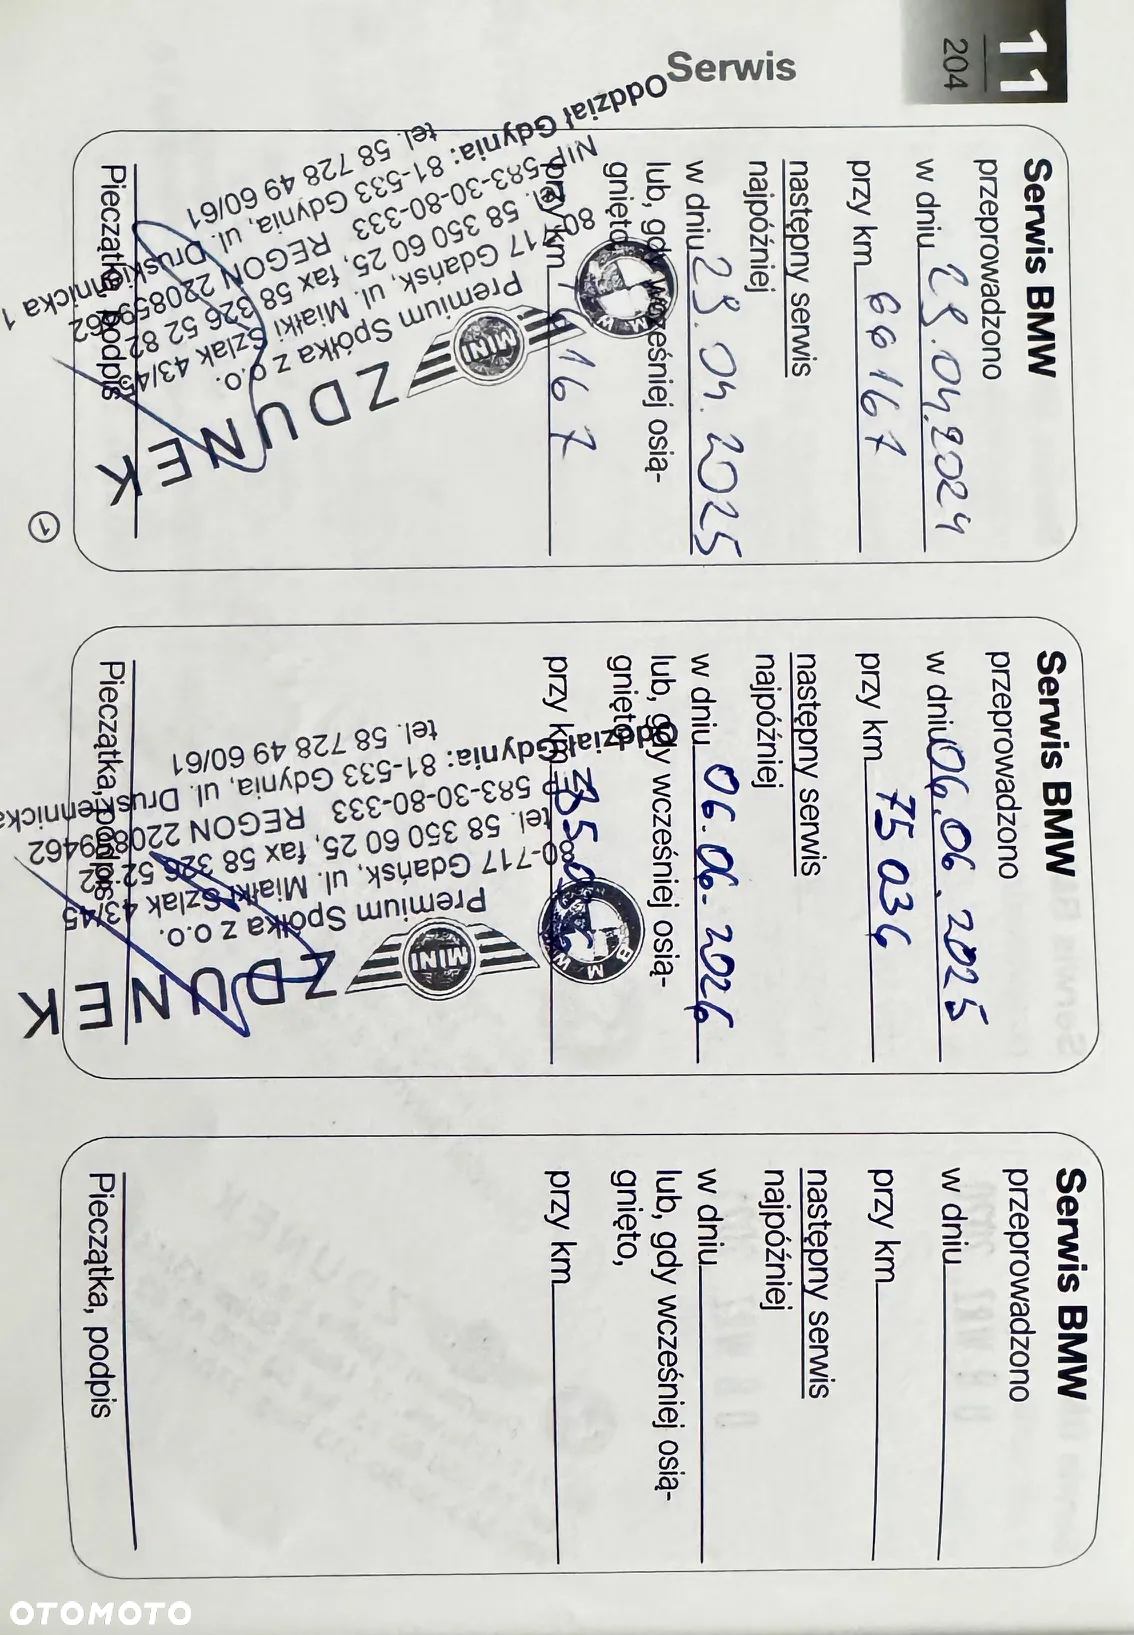 11
204
Serwis
Serwis BMW
przeprowadzono
w dniu 23.04.2024
przy km 66167
następny serwis
najpóźniej
w dniu 23.04.2025
lub, gdy wcześniej osią-
gnięto,
przy km 167
Pieczątka, podpis
ZDUNEK
Premium Spółka z o.o.
80-717 Gdańsk, ul. Miałki Szlak 43/45
tel. 58 350 60 25, fax 58 326 52 82
NIP 583-30-80-333 REGON 220859462
Oddział Gdynia: 81-533 Gdynia, ul. Druskiennicka 1
tel. 58 728 49 60/61
BMW
MINI
1
Serwis BMW
przeprowadzono
w dniu 06.06.2025
przy km 75036
następny serwis
najpóźniej
w dniu 06.06.2026
lub, gdy wcześniej osią-
gnięto,
przy km
Pieczątka, podpis
ZDUNEK
Premium Spółka z o.o.
80-717 Gdańsk, ul. Miałki Szlak 43/45
tel. 58 350 60 25, fax 58 326 52 82
583-30-80-333 REGON 220859462
Oddział Gdynia: 81-533 Gdynia, ul. Druskiennicka
tel. 58 728 49 60/61
BMW
MINI
Serwis BMW
przeprowadzono
w dniu
przy km
następny serwis
najpóźniej
w dniu
lub, gdy wcześniej osią-
gnięto,
przy km
Pieczątka, podpis
OTOMOTO